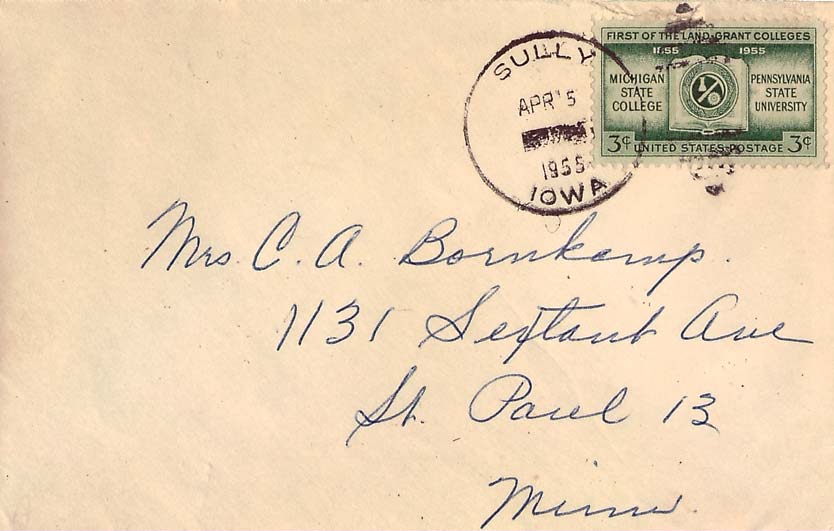 FIRST OF THE LAND-GRANT COLLEGES
1855 1955
MICHIGAN STATE COLLEGE
PENNSYLVANIA STATE UNIVERSITY
3¢ UNITED STATES POSTAGE 3¢
SULLY
APR 5
1955
IOWA
Mrs. C. A. Bornkamp.
1131 Sextant Ave
St. Paul 13
Minn.